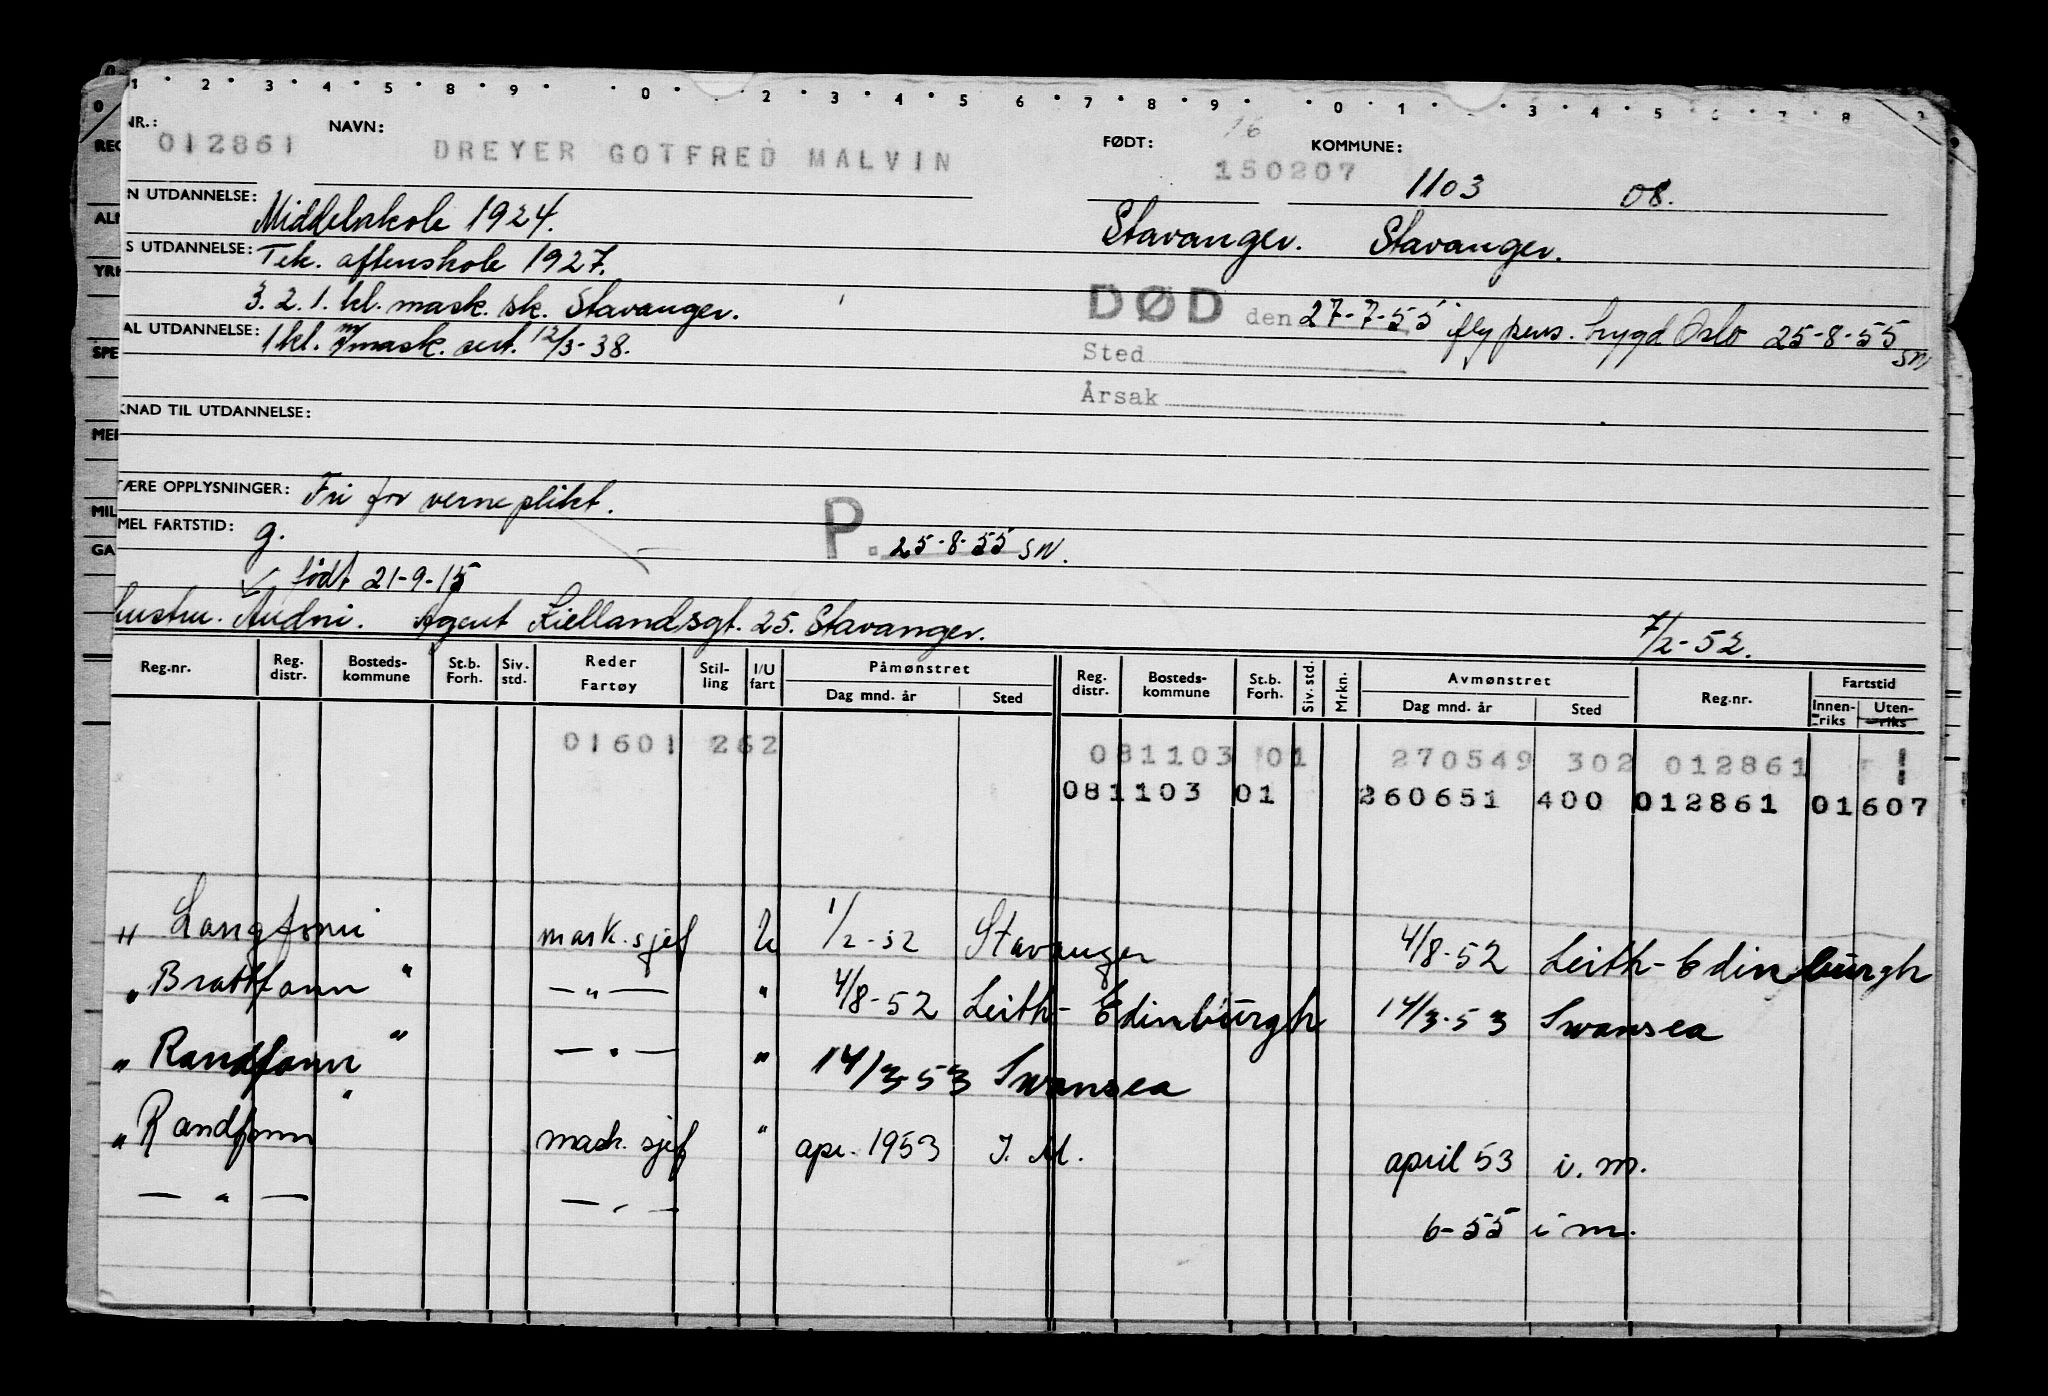 0 1 2 3 4 5 8 9 0 2 3 4 5 6 7 8 9 0 1 3 4 5 6 7 8
NR.: 012861 NAVN: DREYER GOTFRED MALVIN FØDT: 16 150207 KOMMUNE: 1103 08.
N UTDANNELSE: Middelskole 1924. Stavanger. Stavanger.
S UTDANNELSE: Tek. aftenskole 1927.
3. 2. 1. kl. mask. sk. Stavanger. DØD den 27-7-55 ifly pers. trygd Oslo 25-8-55 SN
AL UTDANNELSE: 1 kl. m/mask. sert. 12/3-38. Sted
Årsak
KNAD TIL UTDANNELSE:
TÆRE OPPLYSNINGER: Fri for verneplikt.
MEL FARTSTID: g. P. 25-8-55 SN.
født 21-9-15
hustru. Audni. Agent Kiellandsgt. 25. Stavanger. 7/2-52.
Reg.nr. Reg. distr. Bosteds-kommune St.b. Forh. Siv. std. Reder Fartøy Stil-ling I/U fart Påmønstret Dag mnd. år Sted Reg. distr. Bosteds-kommune St.b. Forh. Siv. std. Mrkn. Avmønstret Dag mnd. år Sted Reg.nr. Fartstid Innen-riks Uten-riks
01601 262 081103 01 270549 302 012861
081103 01 260651 400 012861 01607
" Langfonn mask. sjef U 1/2-52 Stavanger 4/8-52 Leith-Edinburgh
" Brattfonn " — " — " 4/8-52 Leith-Edinburgh 14/3-53 Swansea
" Randfonn " — " — " 14/3-53 Swansea
" Randfonn " mask. sjef " apr. 1953 I. M. april 53 i. m.
— " — — " — 6-55 i m.